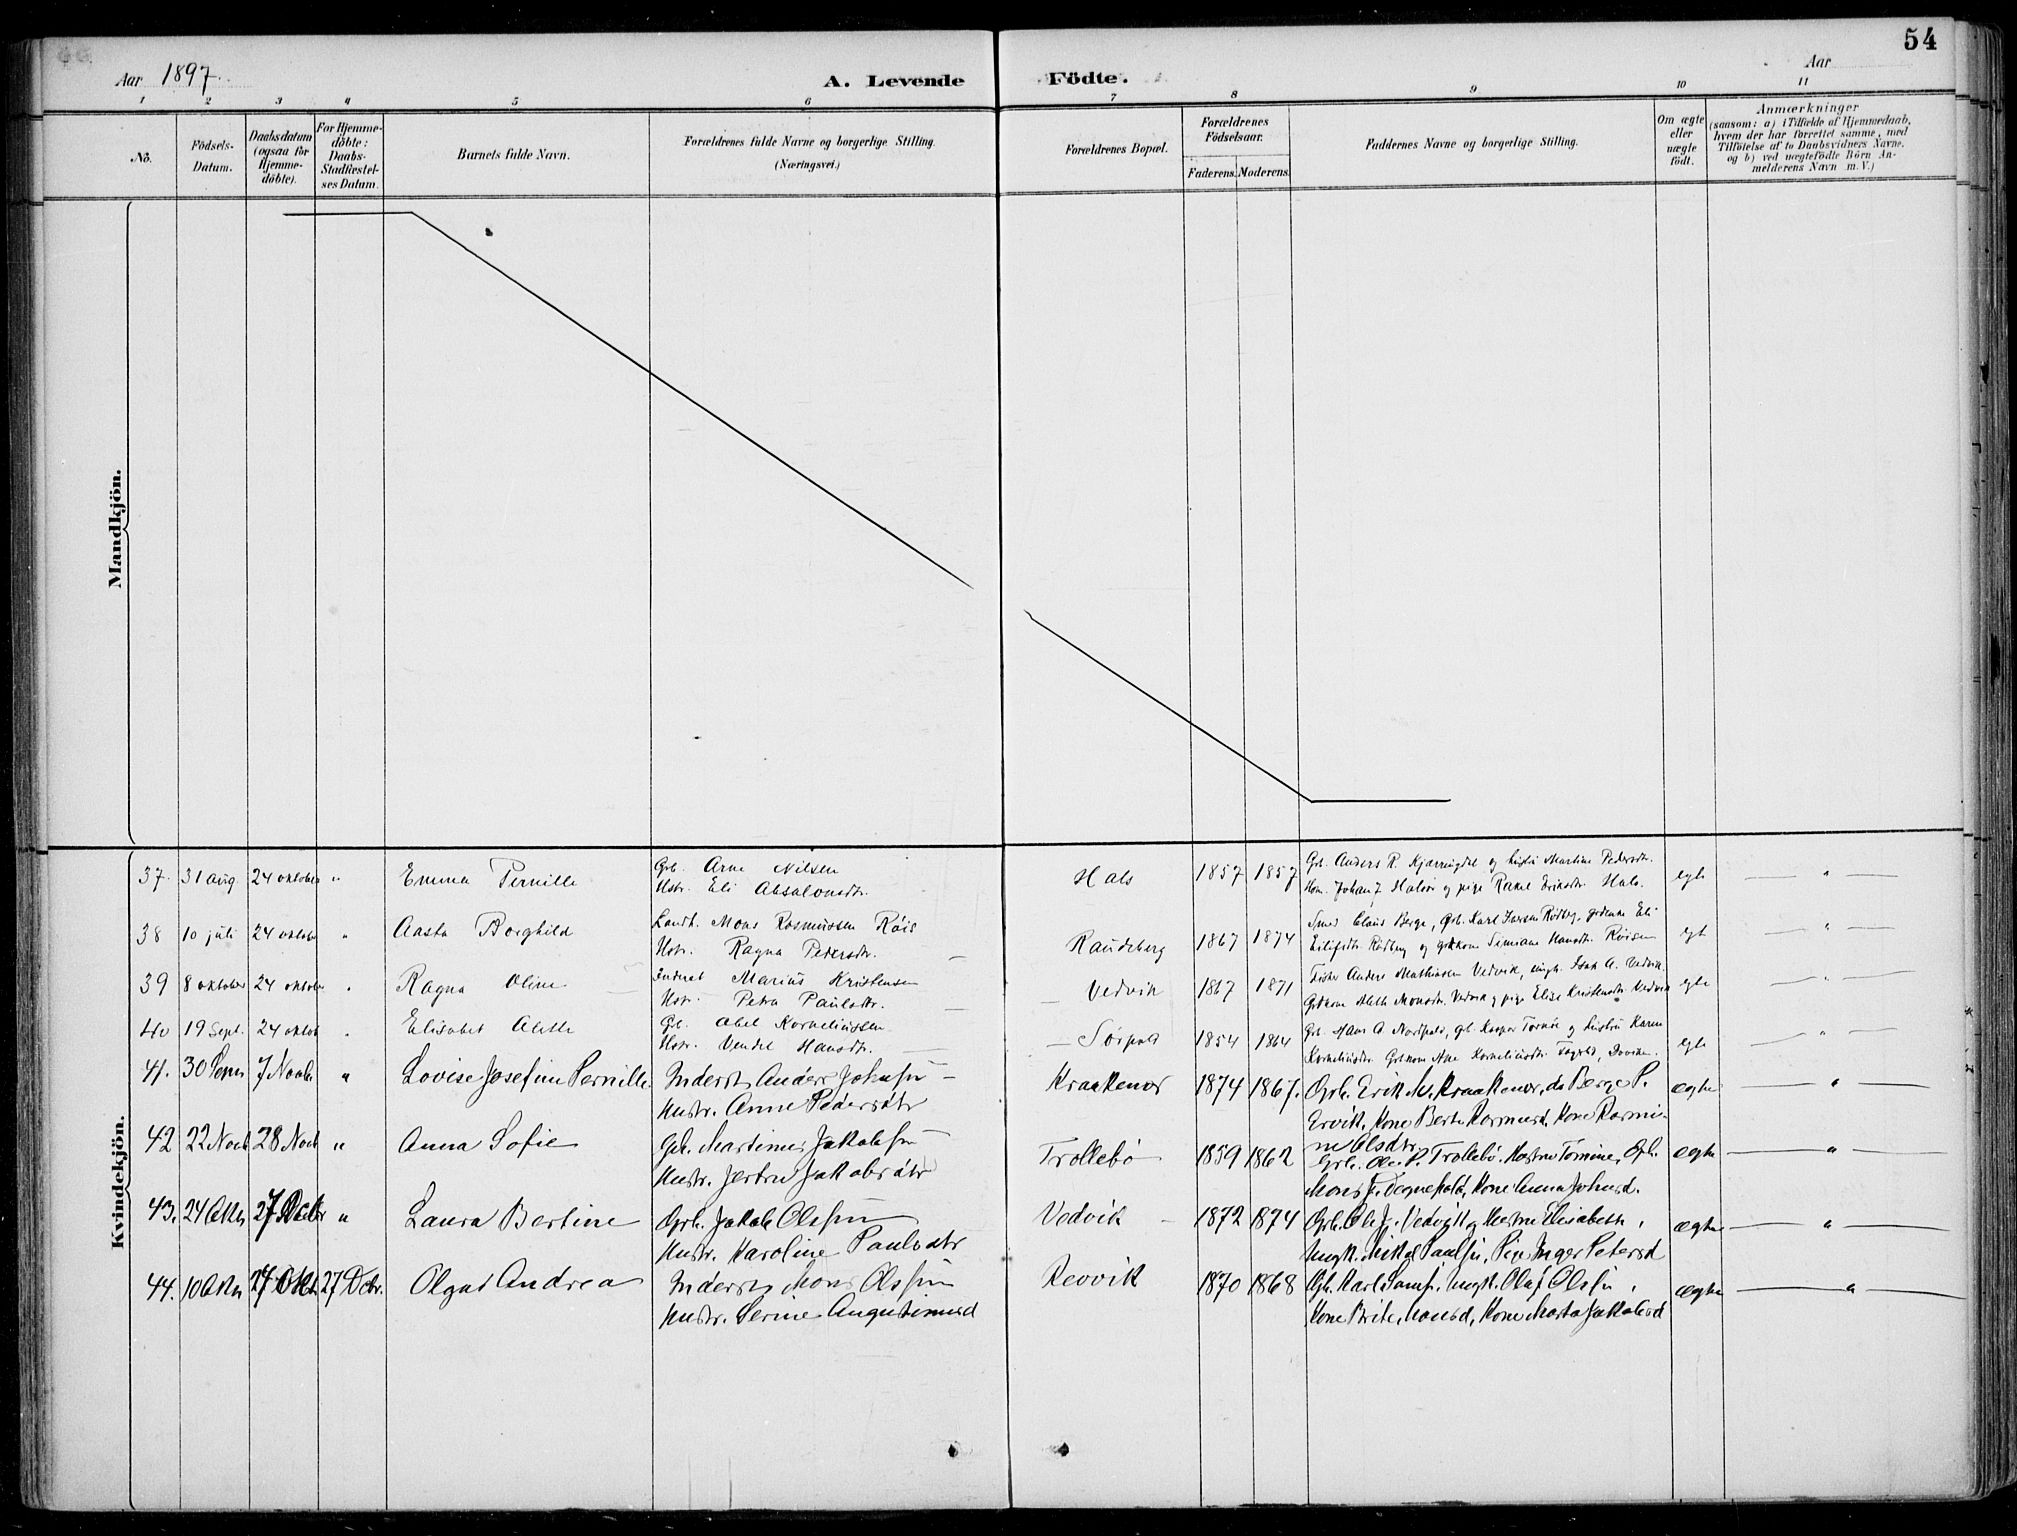 54
Aar 1897.
A. Levende Födte.
Aar
1 2 3 4 5 6 7 8 9 10 11
No.
Födsels-Datum.
Daabsdatum (ogsaa for Hjemme-döbte).
For Hjemme-döbte: Daabs-Stadfæstel-ses Datum.
Barnets fulde Navn.
Forældrenes fulde Navne og borgerlige Stilling. (Næringsvei.)
Forældrenes Bopæl.
Forældrenes Födselsaar.
Faderens. Moderens.
Faddernes Navne og borgerlige Stilling.
Om ægte eller uægte födt.
Anmærkninger
(saasom: a) i Tilfælde af Hjemmedaab,
hvem der har forrettet samme, med
Tilföielse af to Daabsvidners Navne,
og b) ved uægtefödte Börn An-
melderens Navn m. V.)
Mandkjön.
Kvindekjön.
37. 31 aug. 24 oktober " Emma Pernille Gbr. Arne Nilsen Hals 1857 1857 Gbr. Anders R. Kjærringdal og hustru Martine Pedersdtr. egte "
Hstr. Eli Absalonsdtr. Johan J Halsør og pige Rakel Eriksdtr. Hals.
38 10 juli 24 oktober " Aasta Borghild Landh. Mons Rasmussen Röis Raudeberg 1867 1874 Smed Claus Berge, Gbr. Karl Larsen Rödberg, Eli egt "
Hstr. Ragna Pedersdtr. Rödberg og Hansdtr. Röisen
39 8 oktober 24 oktober " Ragna Oline Inderst Marius Kristensen Vedvik 1867 1871 Fisker Anders Mathiasen Vedvik, ungk. Isak A. Vedvik. egte "
Hstr. Petra Paulsdtr. Monsdtr. Vedvik og pige Elise Kristensdtr. Vedvik
40 19 Sept. 24 oktob " Elisabet Alette Gbr. Abel Korneliussen Sörpold 1854 1864 Gbr. Hans A. Nordpold, gbr. Kasper og hustru Karen egte "
Hstr. Vendel Hansdtr. Korneliusdtr.
41. 30 7 Novbr " Lovise Josefine Pernille. Inderst Anders Johnsen Kraakenes 1874 1867. Gbr. Erik M. Kraakenes, do Berge P. ægte "
Hustr. Anne Pedersdtr Ervik, Kone Berte Rasmusd, Kone Rasmi-
ne Olsdtr.
42 22 Novb 28 Novb " Anna Sofie Gbr. Martinus Jakobsen Trollebö 1859 1862 Gbr. Ole P. Trollebö, Hustru Tomine, Gbr. ægte "
Hustr. Jertru Jakobsdtr Mons J. Kone Anna Johnsd.
43. 24 Oktr 27 Decbr " Laura Bertine Gbr. Jakob Olsen Vedvik 1872 1874 Gbr. Ole J. Vedvik og Hustru Elisabeth, ægte "
Hustr. Karoline Paulsdtr Ungk. Mikal Paulsen, Pige Inger Petersd
44. 10 Oktr 27 Dcbr. Olga Andrea Inderst Mons Olssen Revvik 1870 1868 Gbr. Karl Ungk. Olaf Olssen, ægte "
Hustr. Serine Augustinusd Kone Brite Monsd, Kone Marta Jakobsd